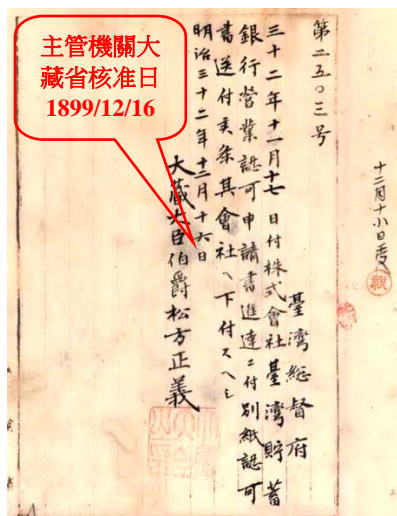 主管機關大
藏省核准日
1899/12/16
第二五〇三号
臺灣總督府
三十二年十一月十七日付株式會社臺灣貯蓄
銀行營業認可申請書進達ニ付別紙認可
書送付候条其會社ヘ下付スヘシ
明治三十二年十二月十六日
大藏大臣伯爵松方正義